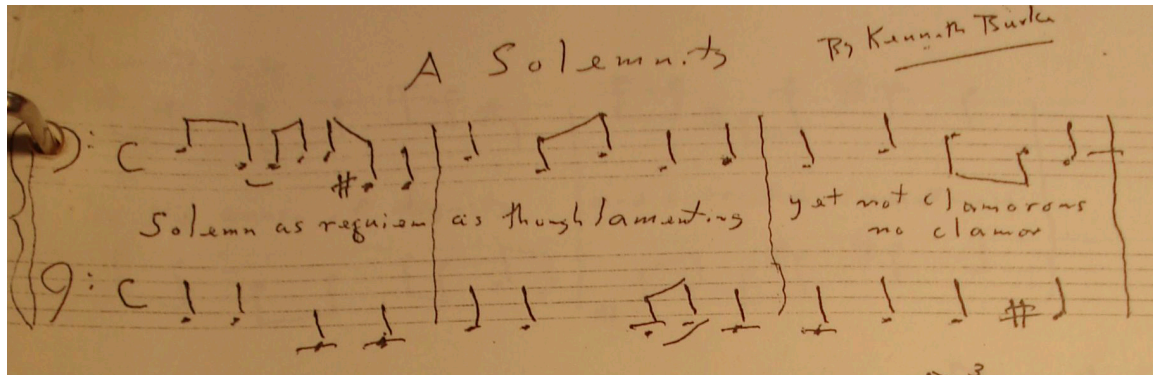 A Solemnity
By Kenneth Burke
Solemn as requiem as though lamenting yet not clamorous
no clamor
3